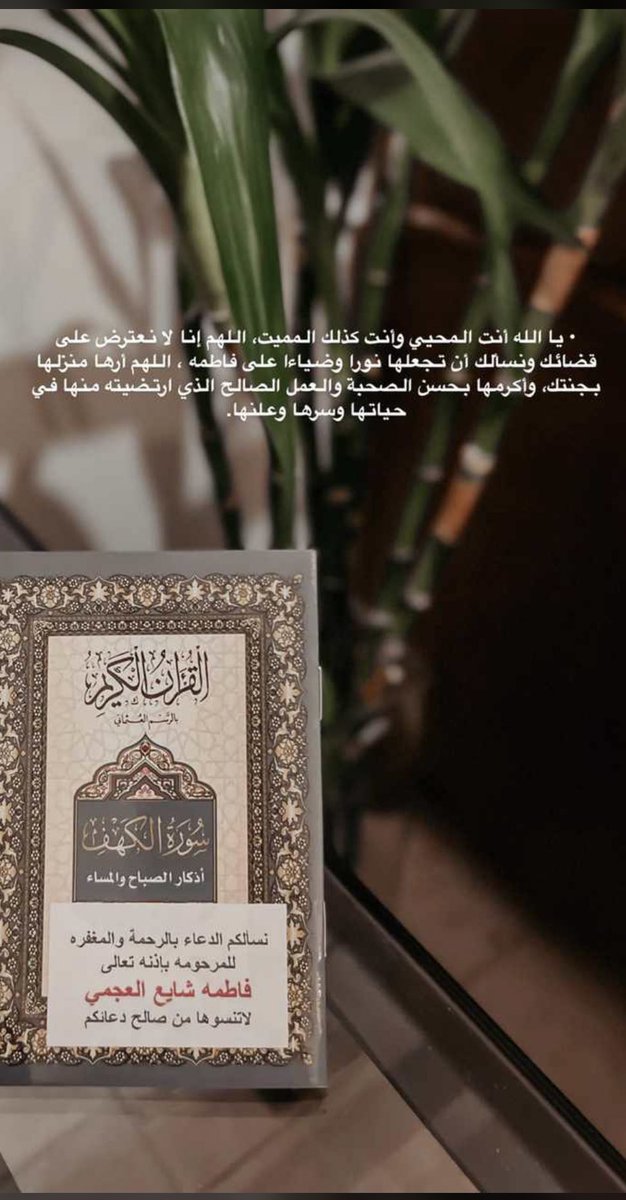 • يا الله أنت المحيي وأنت كذلك المميت، اللهم إنا لا نعترض على
قضائك ونسألك أن تجعلها نورا وضياءا على فاطمه ، اللهم أرها منزلها
بجنتك، وأكرمها بحسن الصحبة والعمل الصالح الذي ارتضيته منها في
حياتها وسرها وعلنها.
القرآن الكريم
بالرسم العثماني
سورة الكهف
أذكار الصباح والمساء
نسألكم الدعاء بالرحمة والمغفره
للمرحومه بإذنه تعالى
فاطمه شايع العجمي
لاتنسوها من صالح دعائكم